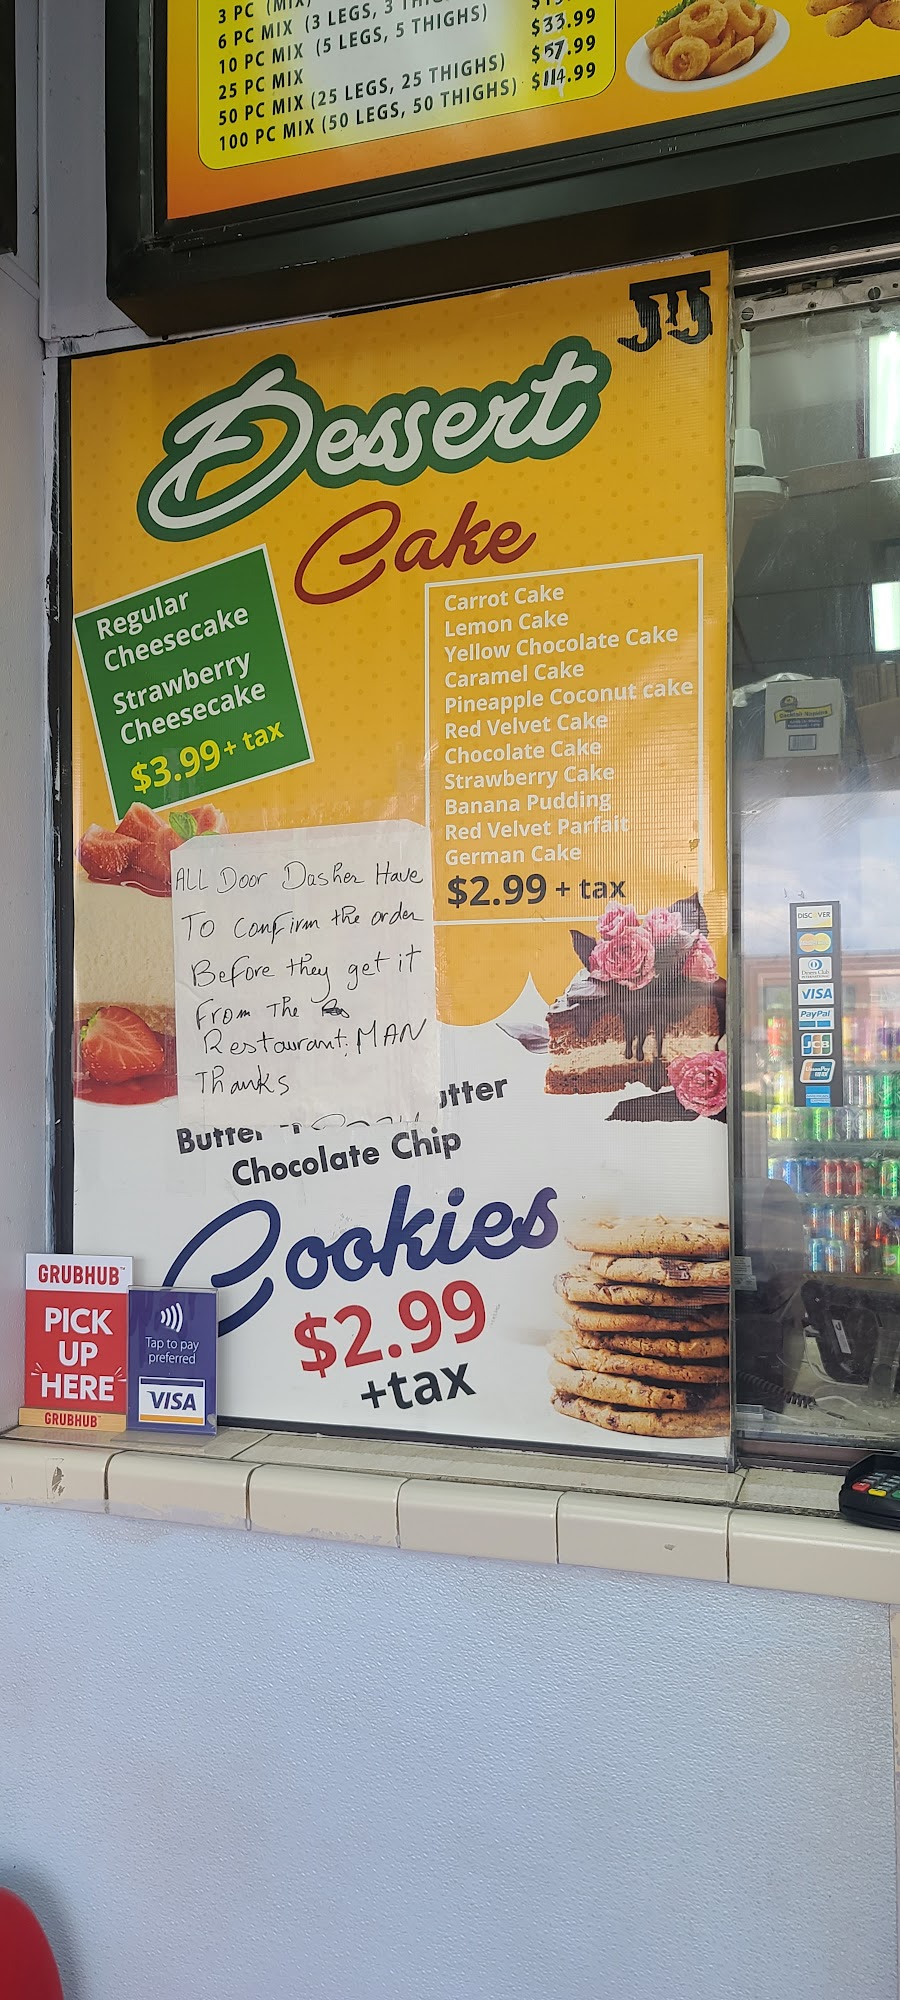 3 PC (MIX)
6 PC MIX (3 LEGS, 3
10 PC MIX (5 LEGS, 5 THIGHS)
25 PC MIX
50 PC MIX (25 LEGS, 25 THIGHS)
100 PC MIX (50 LEGS, 50 THIGHS)
$33.99
$57.99
$114.99
JJ
Dessert
Cake
Regular
Cheesecake
Strawberry
Cheesecake
$3.99 + tax
Carrot Cake
Lemon Cake
Yellow Chocolate Cake
Caramel Cake
Pineapple Coconut cake
Red Velvet Cake
Chocolate Cake
Strawberry Cake
Banana Pudding
Red Velvet Parfait
German Cake
$2.99 + tax
ALL Door Dasher Have
To Confirm the order
Before they get it
From The
Restaurant: MAN
Thanks
utter
Butter
Chocolate Chip
Cookies
$2.99
+tax
GRUBHUB
PICK
UP
HERE
GRUBHUB
Tap to pay
preferred
VISA
DISCOVER
Diners Club
VISA
PayPal
JCB
UnionPay